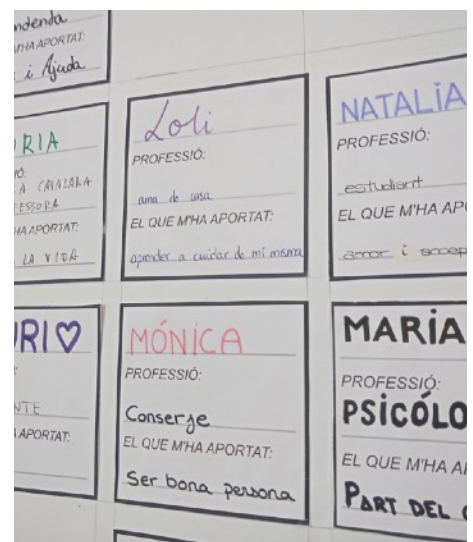 M'HA APORTAT:
i Ajuda
RIA
A CATALANA
HA APORTAT:
LA VIDA
Loli
PROFESSIÓ:
ama de casa
EL QUE M'HA APORTAT:
aprender a cuidar de mi misma
NATALIA
PROFESSIÓ:
estudiant
EL QUE M'HA AP
amor i accep
URI♡
NTE
APORTAT:
MÓNICA
PROFESSIÓ:
Conserje
EL QUE M'HA APORTAT:
Ser bona persona
MARÍA
PROFESSIÓ:
PSICÓLO
EL QUE M'HA A
PART DEL